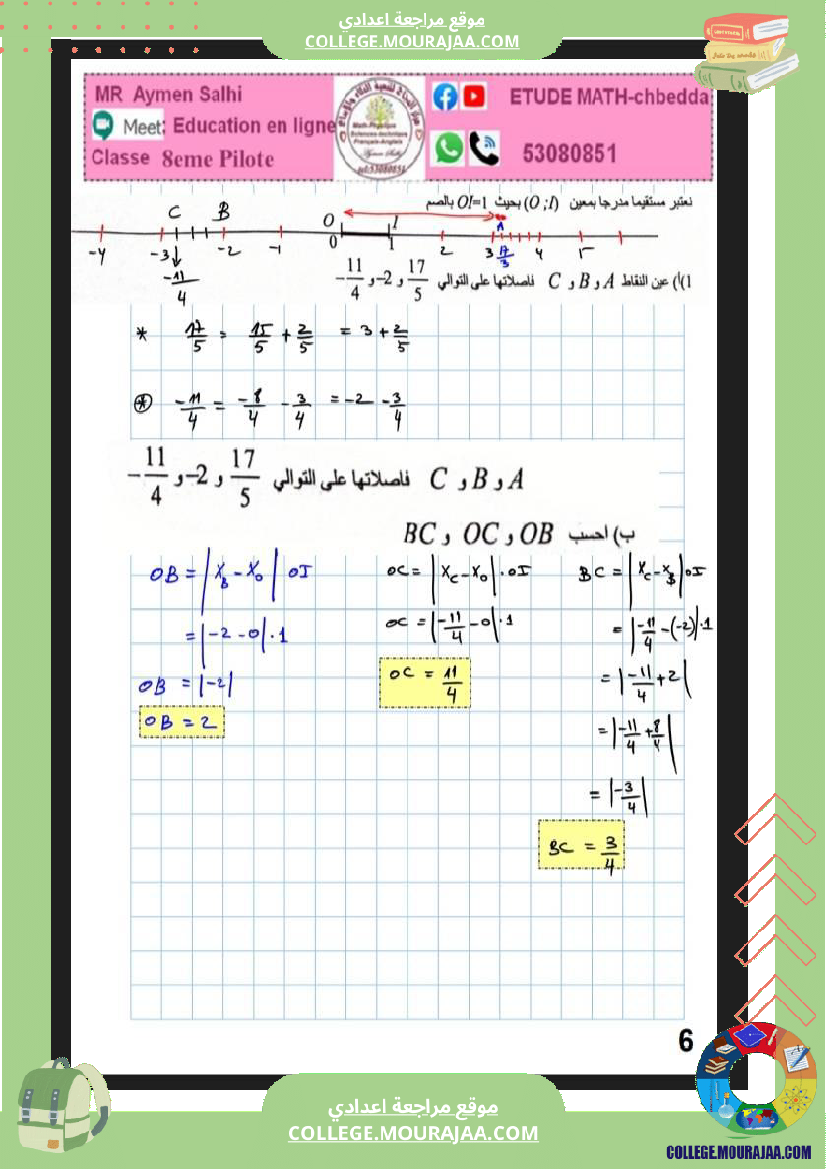 موقع مراجعة اعدادي
COLLEGE.MOURAJAA.COM
MR Aymen Salhi
Meet: Education en ligne
Classe 8eme Pilote
ETUDE MATH-chbedda
53080851
نعتبر مستقيما مدرجا بمعين (O ;I) بحيث OI=1 بالصم
C B O I A
-4 -3 -2 -1 0 1 2 3 17/3 4 5
-11/4
1)أ) عين النقاط A و B و C فاصلاتها على التوالي 17/5 و 2- و -11/4
* 17/5 = 15/5 + 2/5 = 3 + 2/5
* -11/4 = -8/4 - 3/4 = -2 - 3/4
A و B و C فاصلاتها على التوالي 17/5 و 2- و -11/4
ب) احسب OB و OC و BC
OB = |XB - XO| OI
= |-2 - 0| . 1
OB = |-2|
OB = 2
OC = |XC - XO| . OI
OC = |-11/4 - 0| . 1
OC = 11/4
BC = |XC - XB| OI
= |-11/4 - (-2)| . 1
= |-11/4 + 2|
= |-11/4 + 8/4|
= |-3/4|
BC = 3/4
6
موقع مراجعة اعدادي
COLLEGE.MOURAJAA.COM
COLLEGE.MOURAJAA.COM